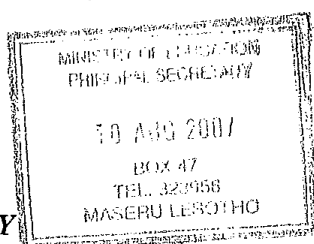 MINISTRY OF EDUCATION
PRINCIPAL SECRETARY
10 AUG 2007
BOX 47
TEL. 323956
Y
MASERU LESOTHO